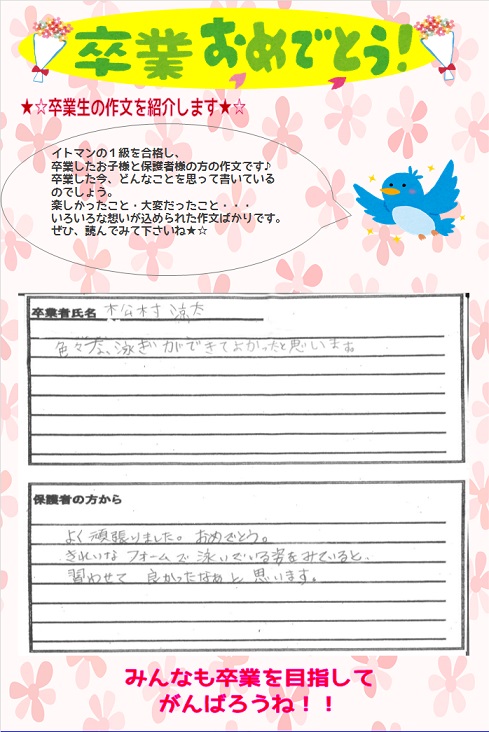 卒業おめでとう!
★☆卒業生の作文を紹介します★☆
イトマンの１級を合格し、
卒業したお子様と保護者様の方の作文です♪
卒業した今、どんなことを思って書いている
のでしょう。
楽しかったこと・大変だったこと・・・
いろいろな想いが込められた作文ばかりです。
ぜひ、読んでみて下さいね★☆
卒業者氏名 松村 涼太
色々な、泳ぎができてよかったと思います
保護者の方から
よく頑張りました。おめでとう。
きれいなフォームで泳いでいる姿をみていると、
習わせて 良かったなぁと 思います。
みんなも卒業を目指して
がんばろうね！！